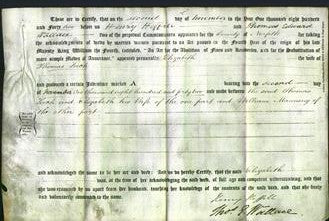 These are to Certify, that on the second day of November in the Year One thousand eight hundred
and Forty two before us Henry and Thomas Edward
Wallace Two of the perpetual Commissioners appointed for the County of for
the taking acknowledgments of deeds by married women pursuant to an Act passed in the Fourth Year of the reign of his late
Majesty King William the Fourth, intituled, "An Act for the Abolition of Fines and Recoveries, and for the Substitution of
more simple Modes of Assurance," appeared personally Elizabeth
and produced a certain Indenture marked A bearing date the second day
of November One thousand eight hundred and forty two made between the said Thomas
and Elizabeth his Wife of the one part and William of
the other part
and acknowledged the same to be her act and deed: And we do hereby Certify that the said Elizabeth
was, at the time of her acknowledging the said deed, of full age and competent understanding, and that
she was examined by us apart from her husband, touching her knowledge of the contents of the said deed, and that she freely
and voluntarily consented to the same.
Thos E Wallace